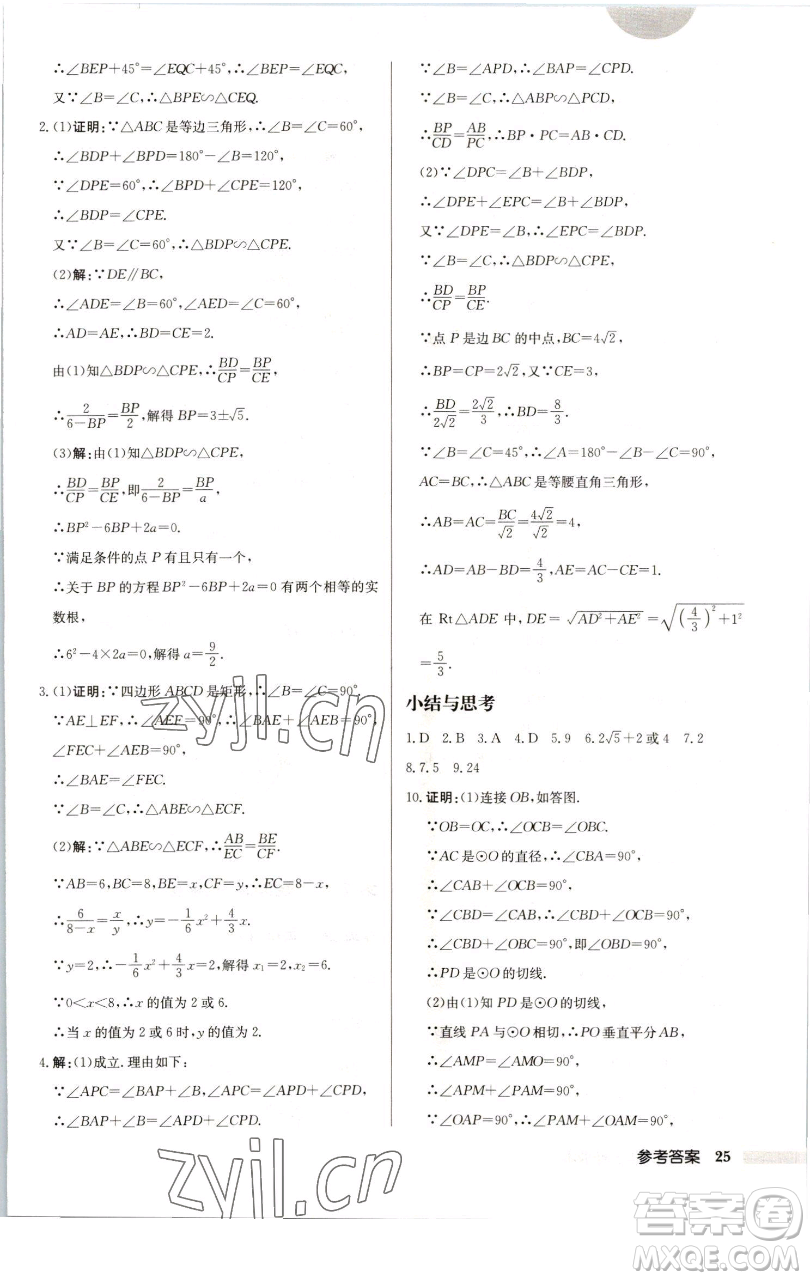 ∴∠BEP+45°=∠EQC+45°,∴∠BEP=∠EQC,
又∵∠B=∠C,∴△BPE∽△CEQ.
2.(1)证明:∵△ABC是等边三角形,∴∠B=∠C=60°,
∴∠BDP+∠BPD=180°-∠B=120°,
∵∠DPE=60°,∴∠BPD+∠CPE=120°,
∴∠BDP=∠CPE.
又∵∠B=∠C=60°,∴△BDP∽△CPE.
(2)解:∵DE∥BC,
∴∠ADE=∠B=60°,∠AED=∠C=60°,
∴AD=AE,∴BD=CE=2.
由(1)知△BDP∽△CPE,∴BD/CP=BP/CE,
∴2/(6-BP)=BP/2,解得BP=3±√5.
(3)解:由(1)知△BDP∽△CPE,
∴BD/CP=BP/CE,即2/(6-BP)=BP/a,
∴BP²-6BP+2a=0.
∵满足条件的点P有且只有一个,
∴关于BP的方程BP²-6BP+2a=0有两个相等的实
数根,
∴6²-4×2a=0,解得a=9/2.
3.(1)证明:∵四边形ABCD是矩形,∴∠B=∠C=90°,
∵AE⊥EF,∴∠AEF=90°,∴∠BAE+∠AEB=90°,
∠FEC+∠AEB=90°,
∴∠BAE=∠FEC.
∵∠B=∠C,∴△ABE∽△ECF.
(2)解:∵△ABE∽△ECF,∴AB/EC=BE/CF.
∵AB=6,BC=8,BE=x,CF=y,∴EC=8-x,
∴6/(8-x)=x/y,∴y=-1/6x²+4/3x.
∵y=2,∴-1/6x²+4/3x=2,解得x₁=2,x₂=6.
∵0<x<8,∴x的值为2或6.
∴当x的值为2或6时,y的值为2.
4.解:(1)成立.理由如下:
∵∠APC=∠BAP+∠B,∠APC=∠APD+∠CPD,
∴∠BAP+∠B=∠APD+∠CPD.
∵∠B=∠APD,∴∠BAP=∠CPD.
又∵∠B=∠C,∴△ABP∽△PCD,
∴BP/CD=AB/PC,∴BP·PC=AB·CD.
(2)∵∠DPC=∠B+∠BDP,
∴∠DPE+∠EPC=∠B+∠BDP,
又∵∠DPE=∠B,∴∠EPC=∠BDP.
又∵∠B=∠C,∴△BDP∽△CPE,
∴BD/CP=BP/CE.
∵点P是边BC的中点,BC=4√2,
∴BP=CP=2√2,又∵CE=3,
∴BD/2√2=2√2/3,∴BD=8/3.
∵∠B=∠C=45°,∴∠A=180°-∠B-∠C=90°,
AC=BC,∴△ABC是等腰直角三角形,
∴AB=AC=BC/√2=4√2/√2=4,
∴AD=AB-BD=4/3,AE=AC-CE=1.
在Rt△ADE中,DE=√(AD²+AE²)=√((4/3)²+1²)
=5/3.
小结与思考
1.D 2.B 3.A 4.D 5.9 6.2√5+2或4 7.2
8.7.5 9.24
10.证明:(1)连接OB,如答图.
∵OB=OC,∴∠OCB=∠OBC.
∵AC是⊙O的直径,∴∠CBA=90°,
∴∠CAB+∠OCB=90°,
∵∠CBD=∠CAB,∴∠CBD+∠OCB=90°,
∴∠CBD+∠OBC=90°,即∠OBD=90°,
∴PD是⊙O的切线.
(2)由(1)知PD是⊙O的切线,
∵直线PA与⊙O相切,∴PO垂直平分AB,
∴∠AMP=∠AMO=90°,
∴∠APM+∠PAM=90°,
∵∠OAP=90°,∴∠PAM+∠OAM=90°,
参考答案 25
zyjl.cn
zyjl.cn
答案圈
MXQE.COM